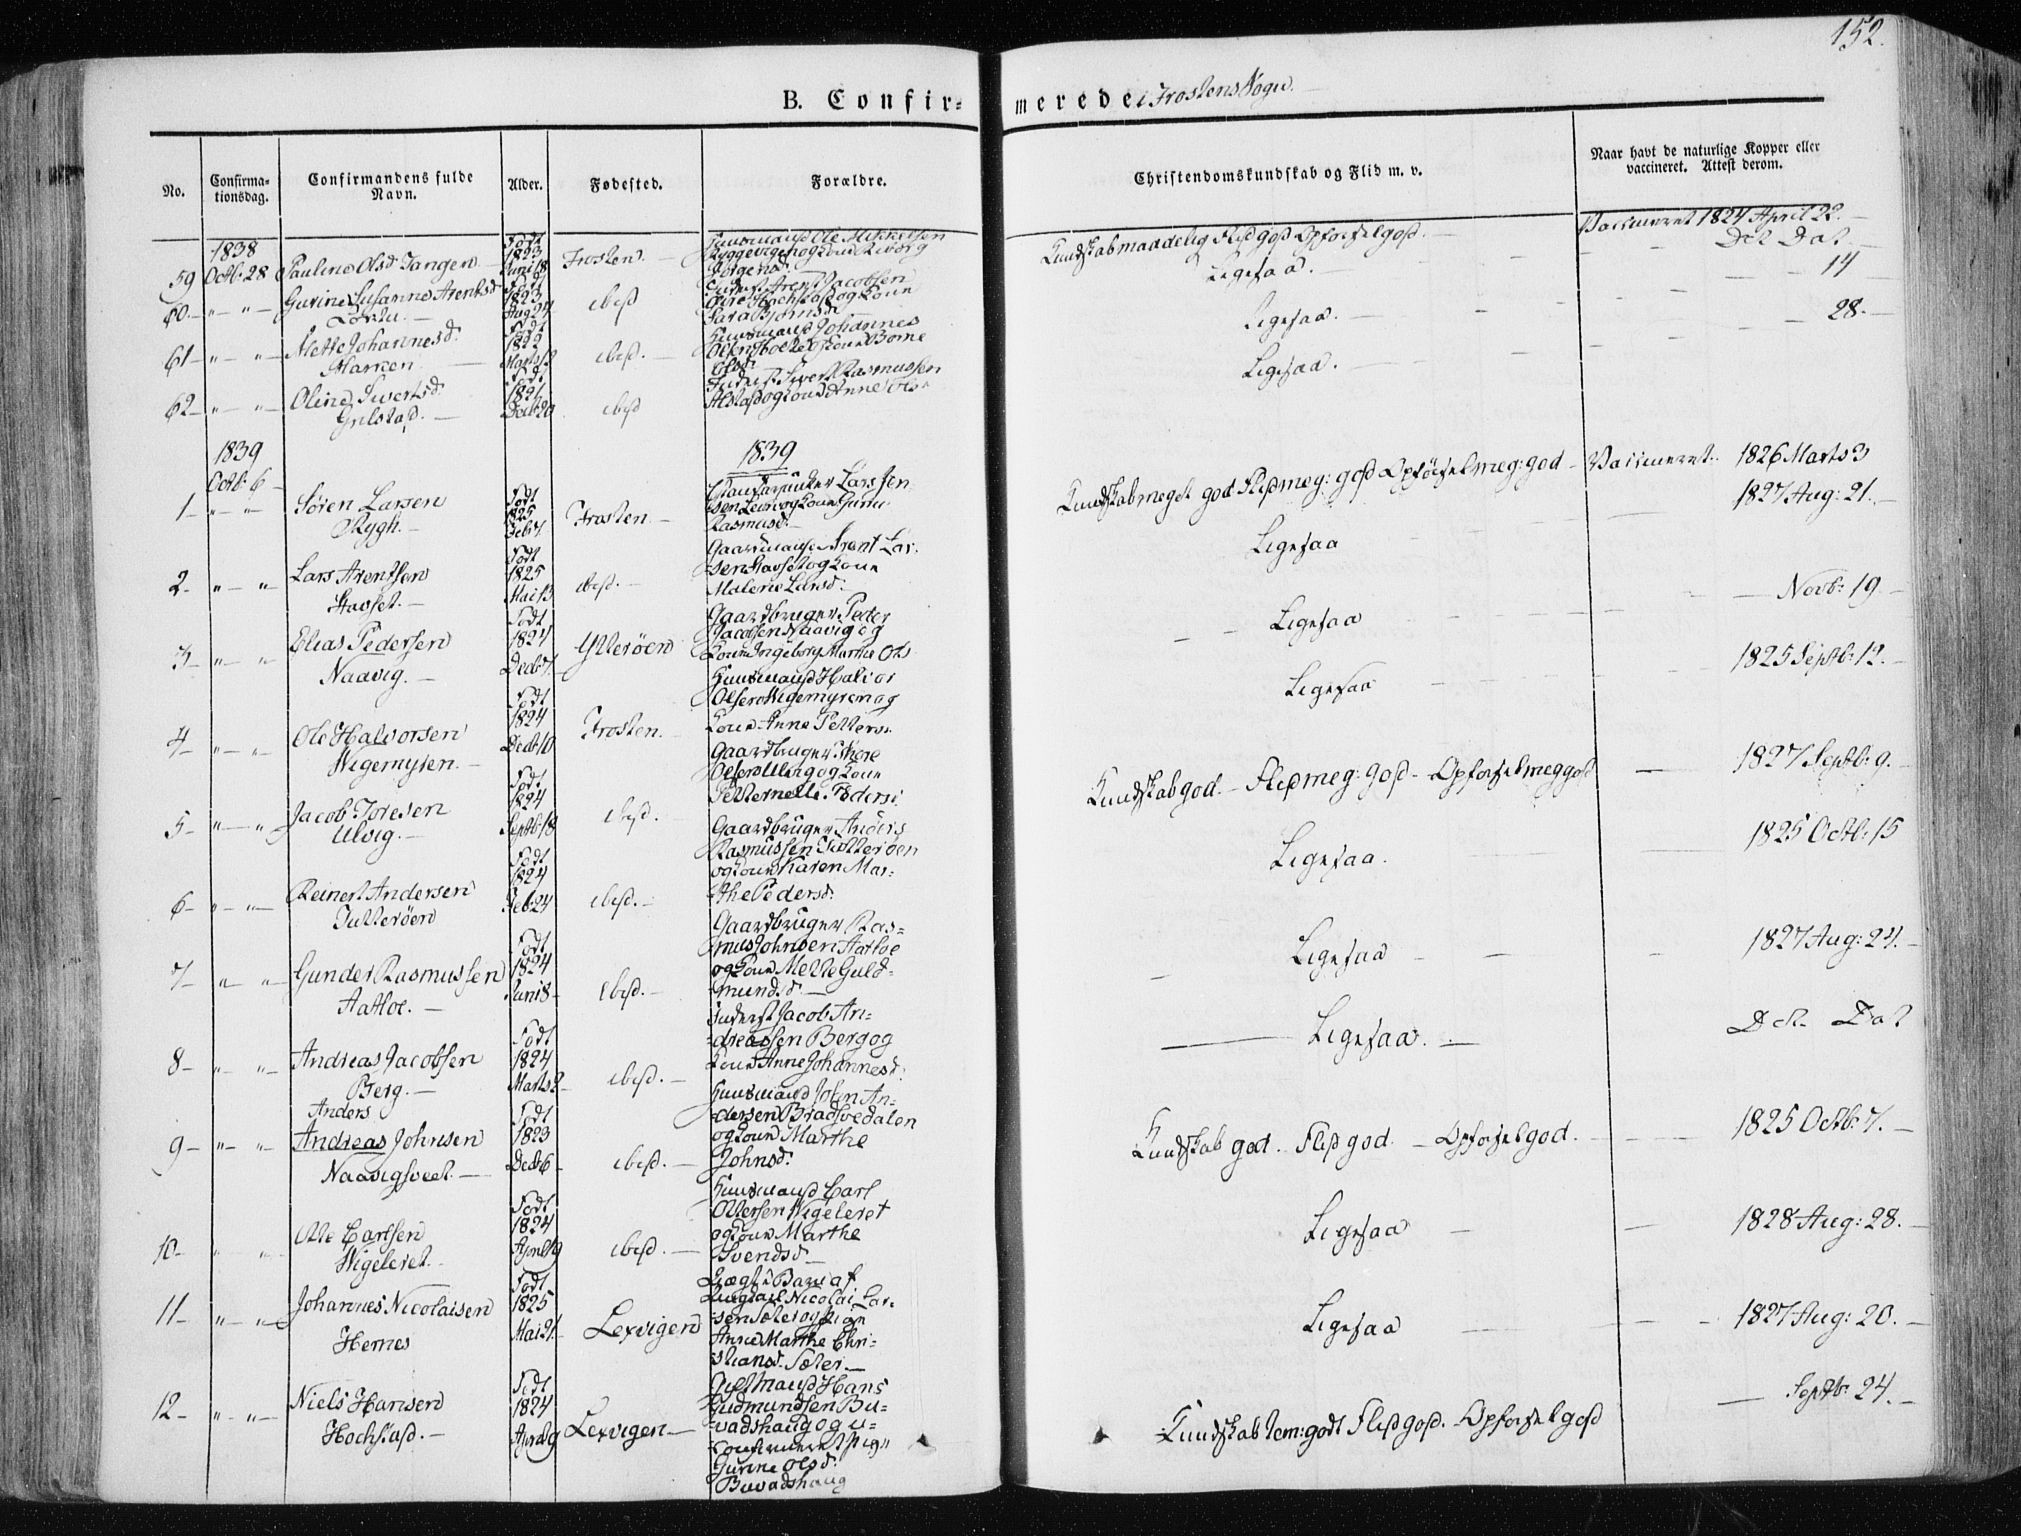 152.
B. Confirmerede i Frostens Sogn.
No.
Confirmationsdag.
Confirmandens fulde Navn.
Alder.
Fødested.
Forældre.
Christendomskundskab og Flid m. v.
Naar havt de naturlige Kopper eller
vaccineret. Attest derom.
1838
59 Octb: 28 Pauline Olsd Tangen
Født 1823 Juni 18
Frosten.
Huusmand Ole Mikkelsen
og Kone
Kundskab maadelig Flid god Opførsel god.
Vaccineret 1824 April 22.
60 - " - " -
Født 1823 Aug 24
ibid
Ligesaa.
Det Dat
61 - " - " - Mette Johannesd.
Født 1822
ibid.
Huusmand Johannes
Ligesaa.
14
62 - " - " - Oline Sivertsd.
Decb 20
ibid
Inderst Sivert Rasmussen
og Kone Anne Olsd
Ligesaa.
28.
1839
Octb: 6
1839
1 - " - " Søren Larsen
Rygh.
Født 1825 Feb 7
Frosten.
Rasmusd.
Kundskab meget god Flid meg: god Opførsel meg: god
Vaccineret. 1826 Marts 3
2 - " - " Lars Arentsen
Stavset.
Født 1825 Mai 13
ibid.
Gaardmand Arent Lar-
sen Stavset og Kone
Malene Larsd.
Ligesaa
1827 Aug: 21.
3 - " - " Elias Pedersen
Naavig.
Født 1824 Decb 7.
Ytterøen
Gaardbruger Peter
Jacobsen Naavig og
Kone Ingeborg Marthe Ols
Ligesaa
Novb: 19
4 - " - " Ole Halvorsen
Wigemyren.
Født 1824 Decb 10
Frosten.
Huusmand Halvor
Olsen Wigemyren og
Kone Anne Petters.
Ligesaa
1825 Septb: 12.
5 - " - " Jacob Toresen
Ulvig.
Født 1824 Septb 18
ibid.
Gaardbruger Tore
Olsen Ulvig og Kone
Petternelle Peders.
Kundskab god. - Flid meg: god - Opførsel meg god
1827 Septb: 9.
6 - " - " - Reinert Andersen
Tutterøen
Født 1824 Feb 24
ibid.
Gaardbruger Anders
Rasmussen Tutterøen
og Kone Karen Mar-
the Pedersd.
Ligesaa.
1825 Octb: 15
7 - " - " Gunder Rasmussen
Født 1824 Juni 8
ibid.
Gaardbruger Ras-
mus Johnsen
og Kone Mette Guld-
mundsd.
Ligesaa
1827 Aug: 24.
8 - " - " - Andreas Jacobsen
Berg.
Født 1824 Marts 2
ibid.
Inderst Jacob An-
dreassen Berg og
Kone Anne Johannesd.
Ligesaa.
Det Dat
Anders
9 - " - " Andreas Johnsen
Født 1823 Decb 6
ibid.
Huusmand John An-
dersen
og Kone Marthe
Johnsd.
Kundskab god. Flid god. - Opførsel god.
1825 Octb: 7.
10 - " " Otte Carlsen
Wigeleret.
Født 1824 April 19
ibid.
Huusmand Carl
Ottersen Wigeleret
og Kone Marthe
Svendsd.
Ligesaa
1828 Aug: 28.
11 - " - " - Johannes Nicolaisen
Hernes
Født 1825 Mai 21
Lexvigen
Uægte Barn af
Nicolai Lar-
sen og Pige
Anne Marthe Chri-
stiansd.
Ligesaa
1827 Aug: 20.
12 - " - " - Niels Hansen
Hochstad.
Født 1824
Lexvigen
Gift Mand Hans
Gudmundsen Bu-
vadshaug og u-
confirmeret Pige
Gurine Olsd.
Buvadshaug
Kundskab tem: godt Flid god. Opførsel god
Septb: 24.